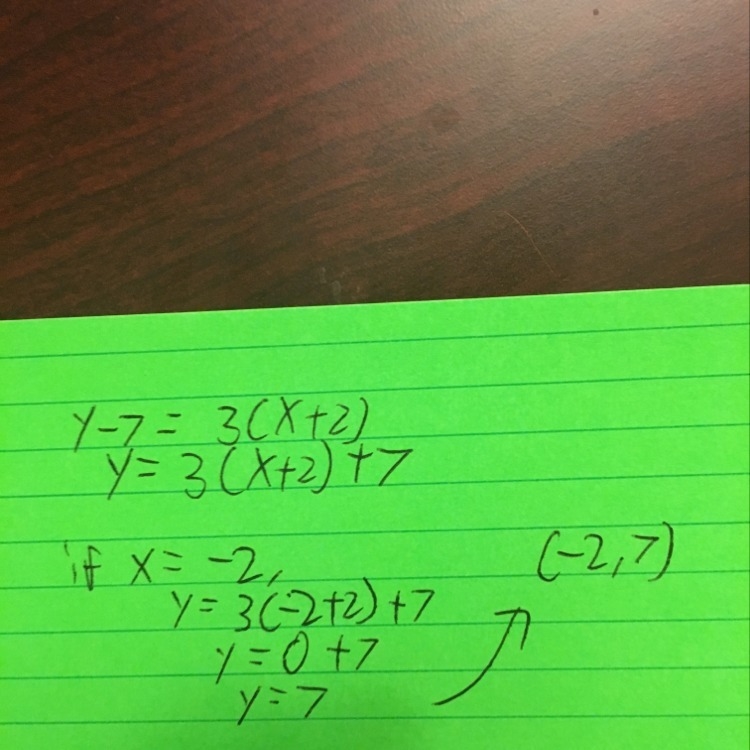 y-7 = 3(x+2)
y = 3(x+2)+7
if x = -2,
(-2,7)
y = 3(-2+2)+7
y = 0+7
y = 7